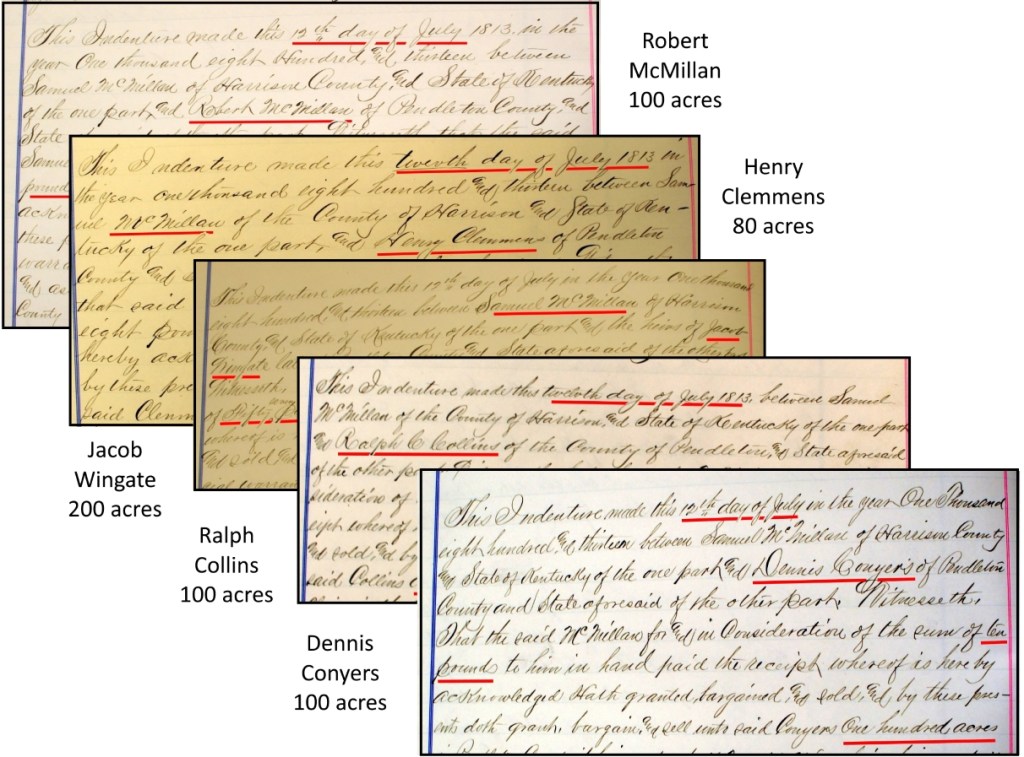 This Indenture made this 12th day of July 1813. in the
year One thousand eight Hundred, and thirteen between
Samuel McMillan of Harrison County, and State of Kentucky
of the one part, and Robert McMillan of Pendleton County, and
State
Samue
pound
ackn
these p
warra
and as
County
Robert
McMillan
100 acres
This Indenture made this twevth day of July 1813 in
the year one thousand eight hundred and thirteen between Sam-
uel McMillan of the County of Harrison and State of Ken-
tucky of the one part, and Henry Clemmens of Pendleton
County and S
that said
eight poun
hereby ack
by these pre
said Clemm
Henry
Clemmens
80 acres
This Indenture made this 12th day of July in the Year One thousand
eight hundred, and thirteen between Samuel McMillan of Harrison
County and State of Kentucky of the one part and the heirs of Jacob
Wingate la
Witnesseth,
of Fifty p
whereof is
and sold, and
cial warran
Jacob
Wingate
200 acres
This Indenture made this twevth day of July 1813, between Samuel
McMillan of the County of Harrison, and State of Kentucky of the one part
and Ralph C Collins of the County of Pendleton, and State aforesaid
of the other p
sideration of
eipt whereof
and sold, and by
said Collins
Ralph
Collins
100 acres
This Indenture made this 12th day of July in the year One Thousand
eight hundred, and thirteen between Samuel McMillan of Harrison County
and State of Kentucky of the one part and Dennis Conyers of Pendleton
County and State aforesaid of the other part, Witnesseth,
That the said McMillan for and in Consideration of the sum of ten
pounds to him in hand paid the receipt whereof is here by
acknowledged Hath granted, bargained, and sold, and, by these pres-
ents doth grant, bargain, and sell unto said Conyers One hundred acres
Dennis
Conyers
100 acres